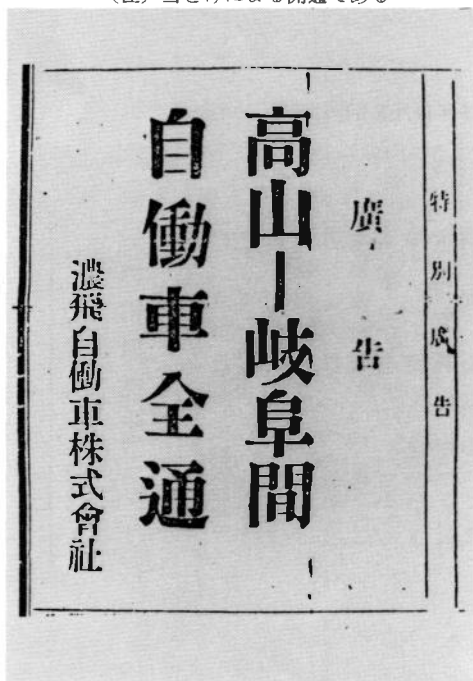 特別廣告
廣告
高山ー岐阜間
自働車全通
濃飛自働車株式會社